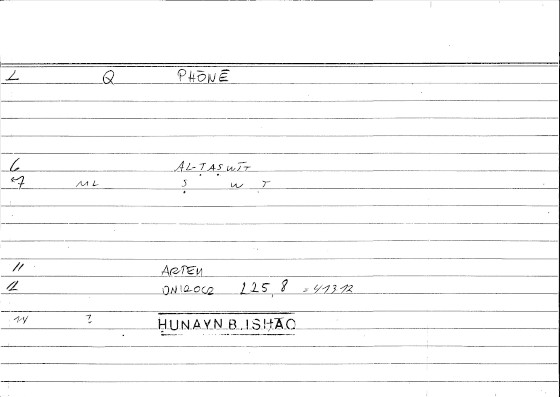 1 Q PHŌNĒ
6 AL-TAṢWĪT
7 ML Ṣ W T
11 ARTEM
12 ONIROC2 225,8 = 413 12
14 ? ḤUNAYN B. ISḤĀQ